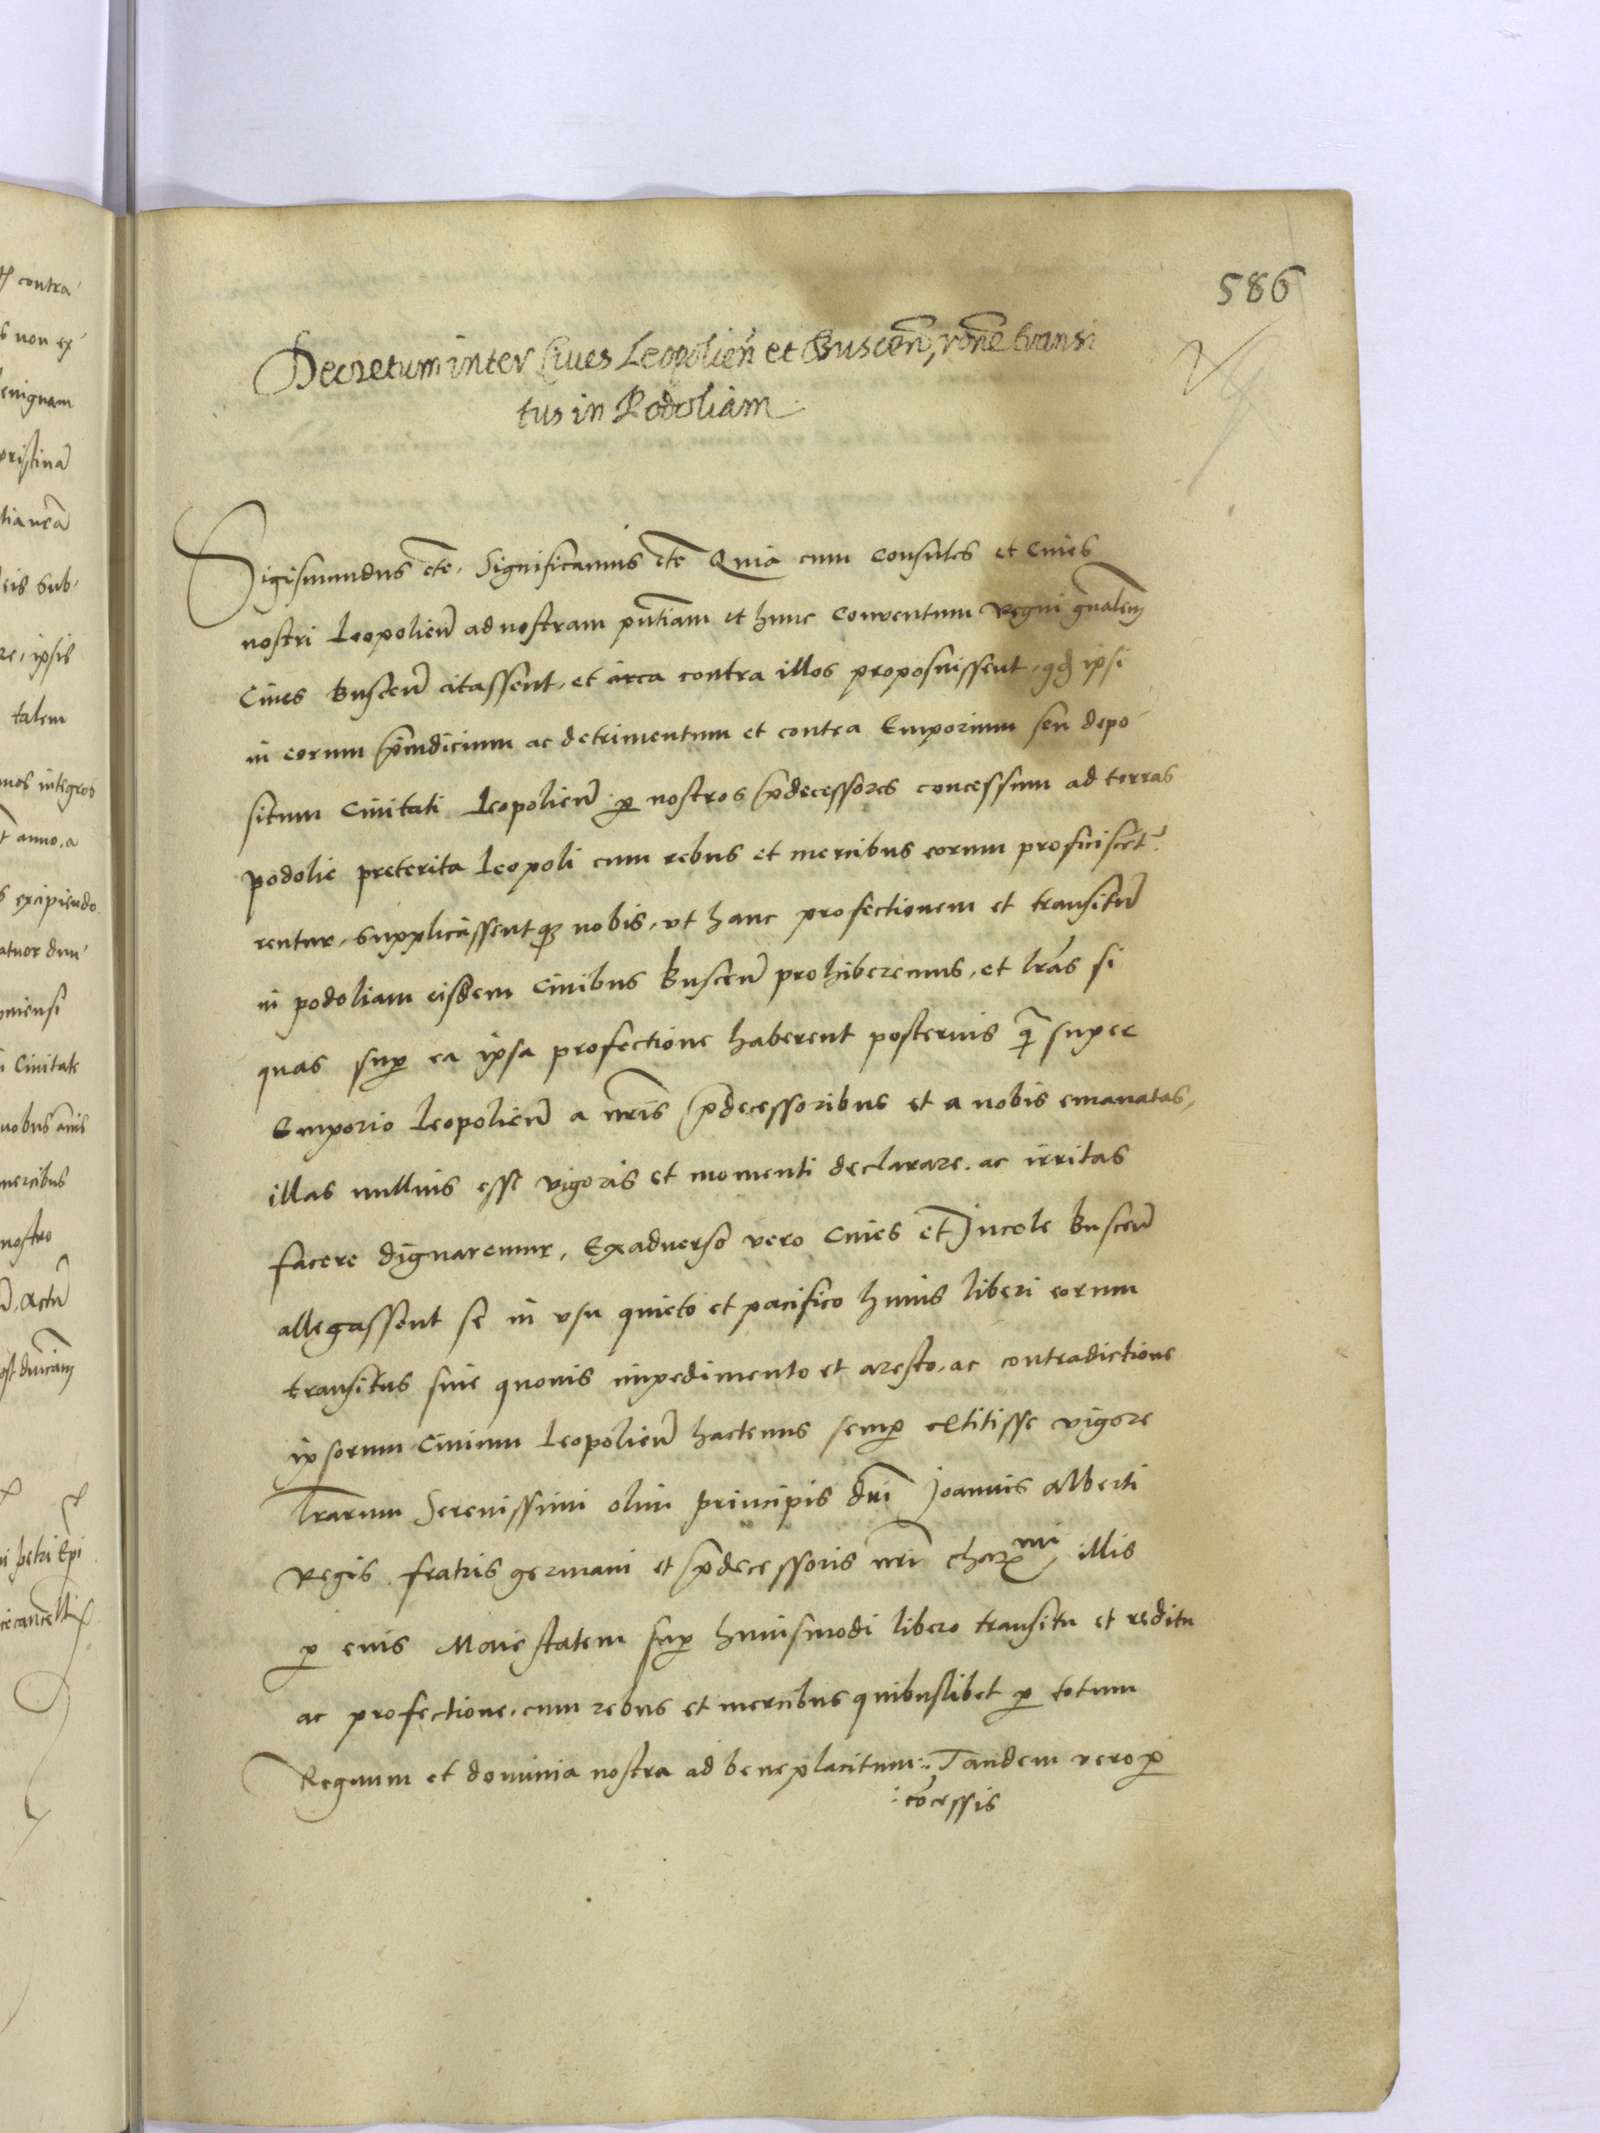 586
Decretum inter Ciues Leopolien̄ et Buscen̄, rōne transi
tus in Podoliam
Sigismundus etc. Significamus etc Quia cum Consules et Ciues
nostri Leopolien̄ ad nostram pn̄tiam et hunc Conventum regni gn̄alem
Ciues Buscen̄ citassent, et circa contra illos proposuissent, qđ ipsi
in eorum p̄iudicium ac detrimentum et contra Emporium seu depo
situm Ciuitati Leopolien̄ ꝑ nostros p̄decessores concessum ad terras
podolie preterita Leopoli cum rebus et mercibus eorum proficiscet
rentur, supplicassentqꝫ nobis, vt hanc profectionem et transitū
in podoliam eisdem Ciuibus Buscen̄ prohiberemus, et lr̄as si
quas suꝑ ea ipsa profectione haberent posterius q̄ super
Emporio Leopolien̄ a nr̄is p̄decessoribus et a nobis emanatas,
illas nullius esse vigoris et momenti declarare, ac irritas
facere dignaremur, Exaduerso vero Ciues et Incole Buscen̄
allegassent se in vsu quieto et pacifico huius liberi eorum
transitus sine quouis impedimento et aresto, ac contradictione
ipsorum Ciuium Leopolien̄ hactenus semꝑ extitisse vigore
lr̄arum Serenissimi olim principis dn̄i Joannis Alberti
Regis fratris germani et p̄decessoris nr̄i char^mi illis
ꝑ eius Maiestatem suꝑ huiusmodi libero transitu et reditu
ac profectione, cum rebus et mercibus quibuslibet ꝑ totum
Regnum et dominia nostra ad beneplacitum :, Tandem vero ꝑ
: cōcessis
contra
non ex
benignam
pristinā
sub
ipsis
talem
integros
anno, a
excipiendo
Ciuitate
mercibus
nostro
Actū
petri Epi